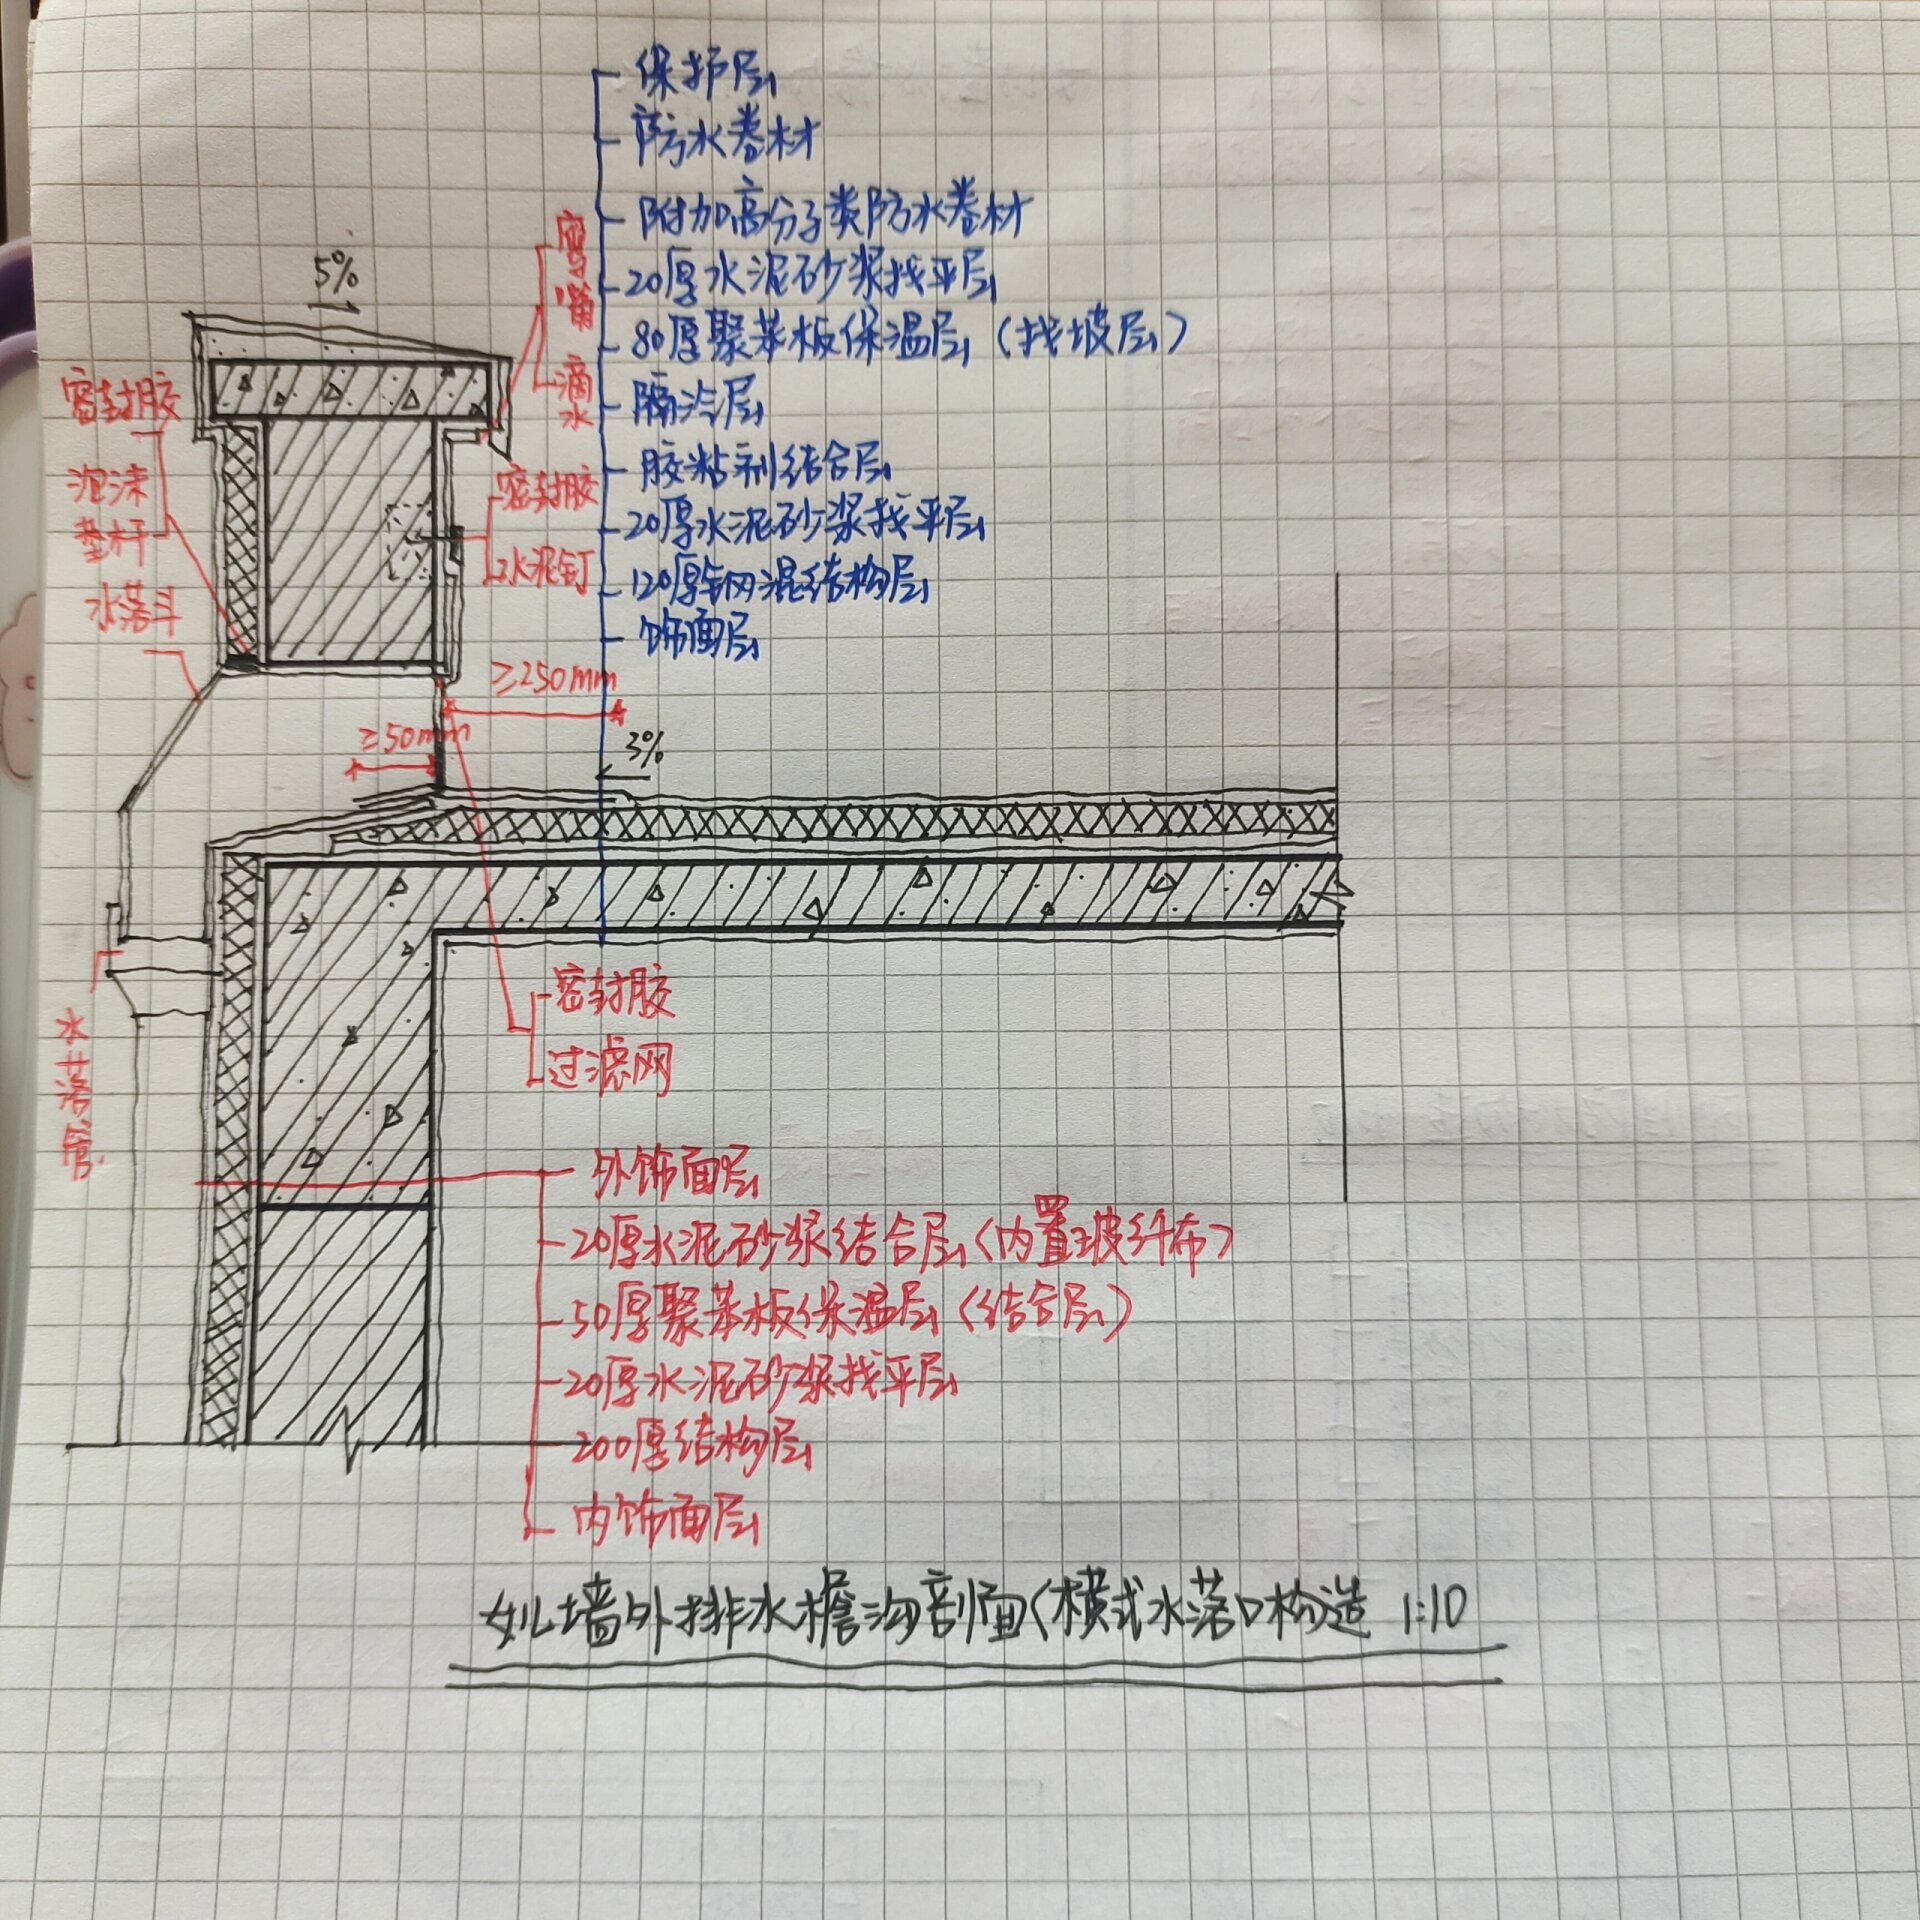 保护层
防水卷材
附加高分子类防水卷材
20厚水泥砂浆找平层
80厚聚苯板保温层（找坡层）
隔汽层
胶粘剂结合层
20厚水泥砂浆找平层
120厚钢混结构层
饰面层
5%
鹰嘴
滴水
密封胶
泡沫
垫杆
水落斗
密封胶
水泥钉
≥250mm
≥50mm
3%
水落管
密封胶
过滤网
外饰面层
20厚水泥砂浆结合层（内置玻纤布）
50厚聚苯板保温层（结合层）
20厚水泥砂浆找平层
200厚结构层
内饰面层
女儿墙外排水檐沟剖面（横式水落口构造 1:10